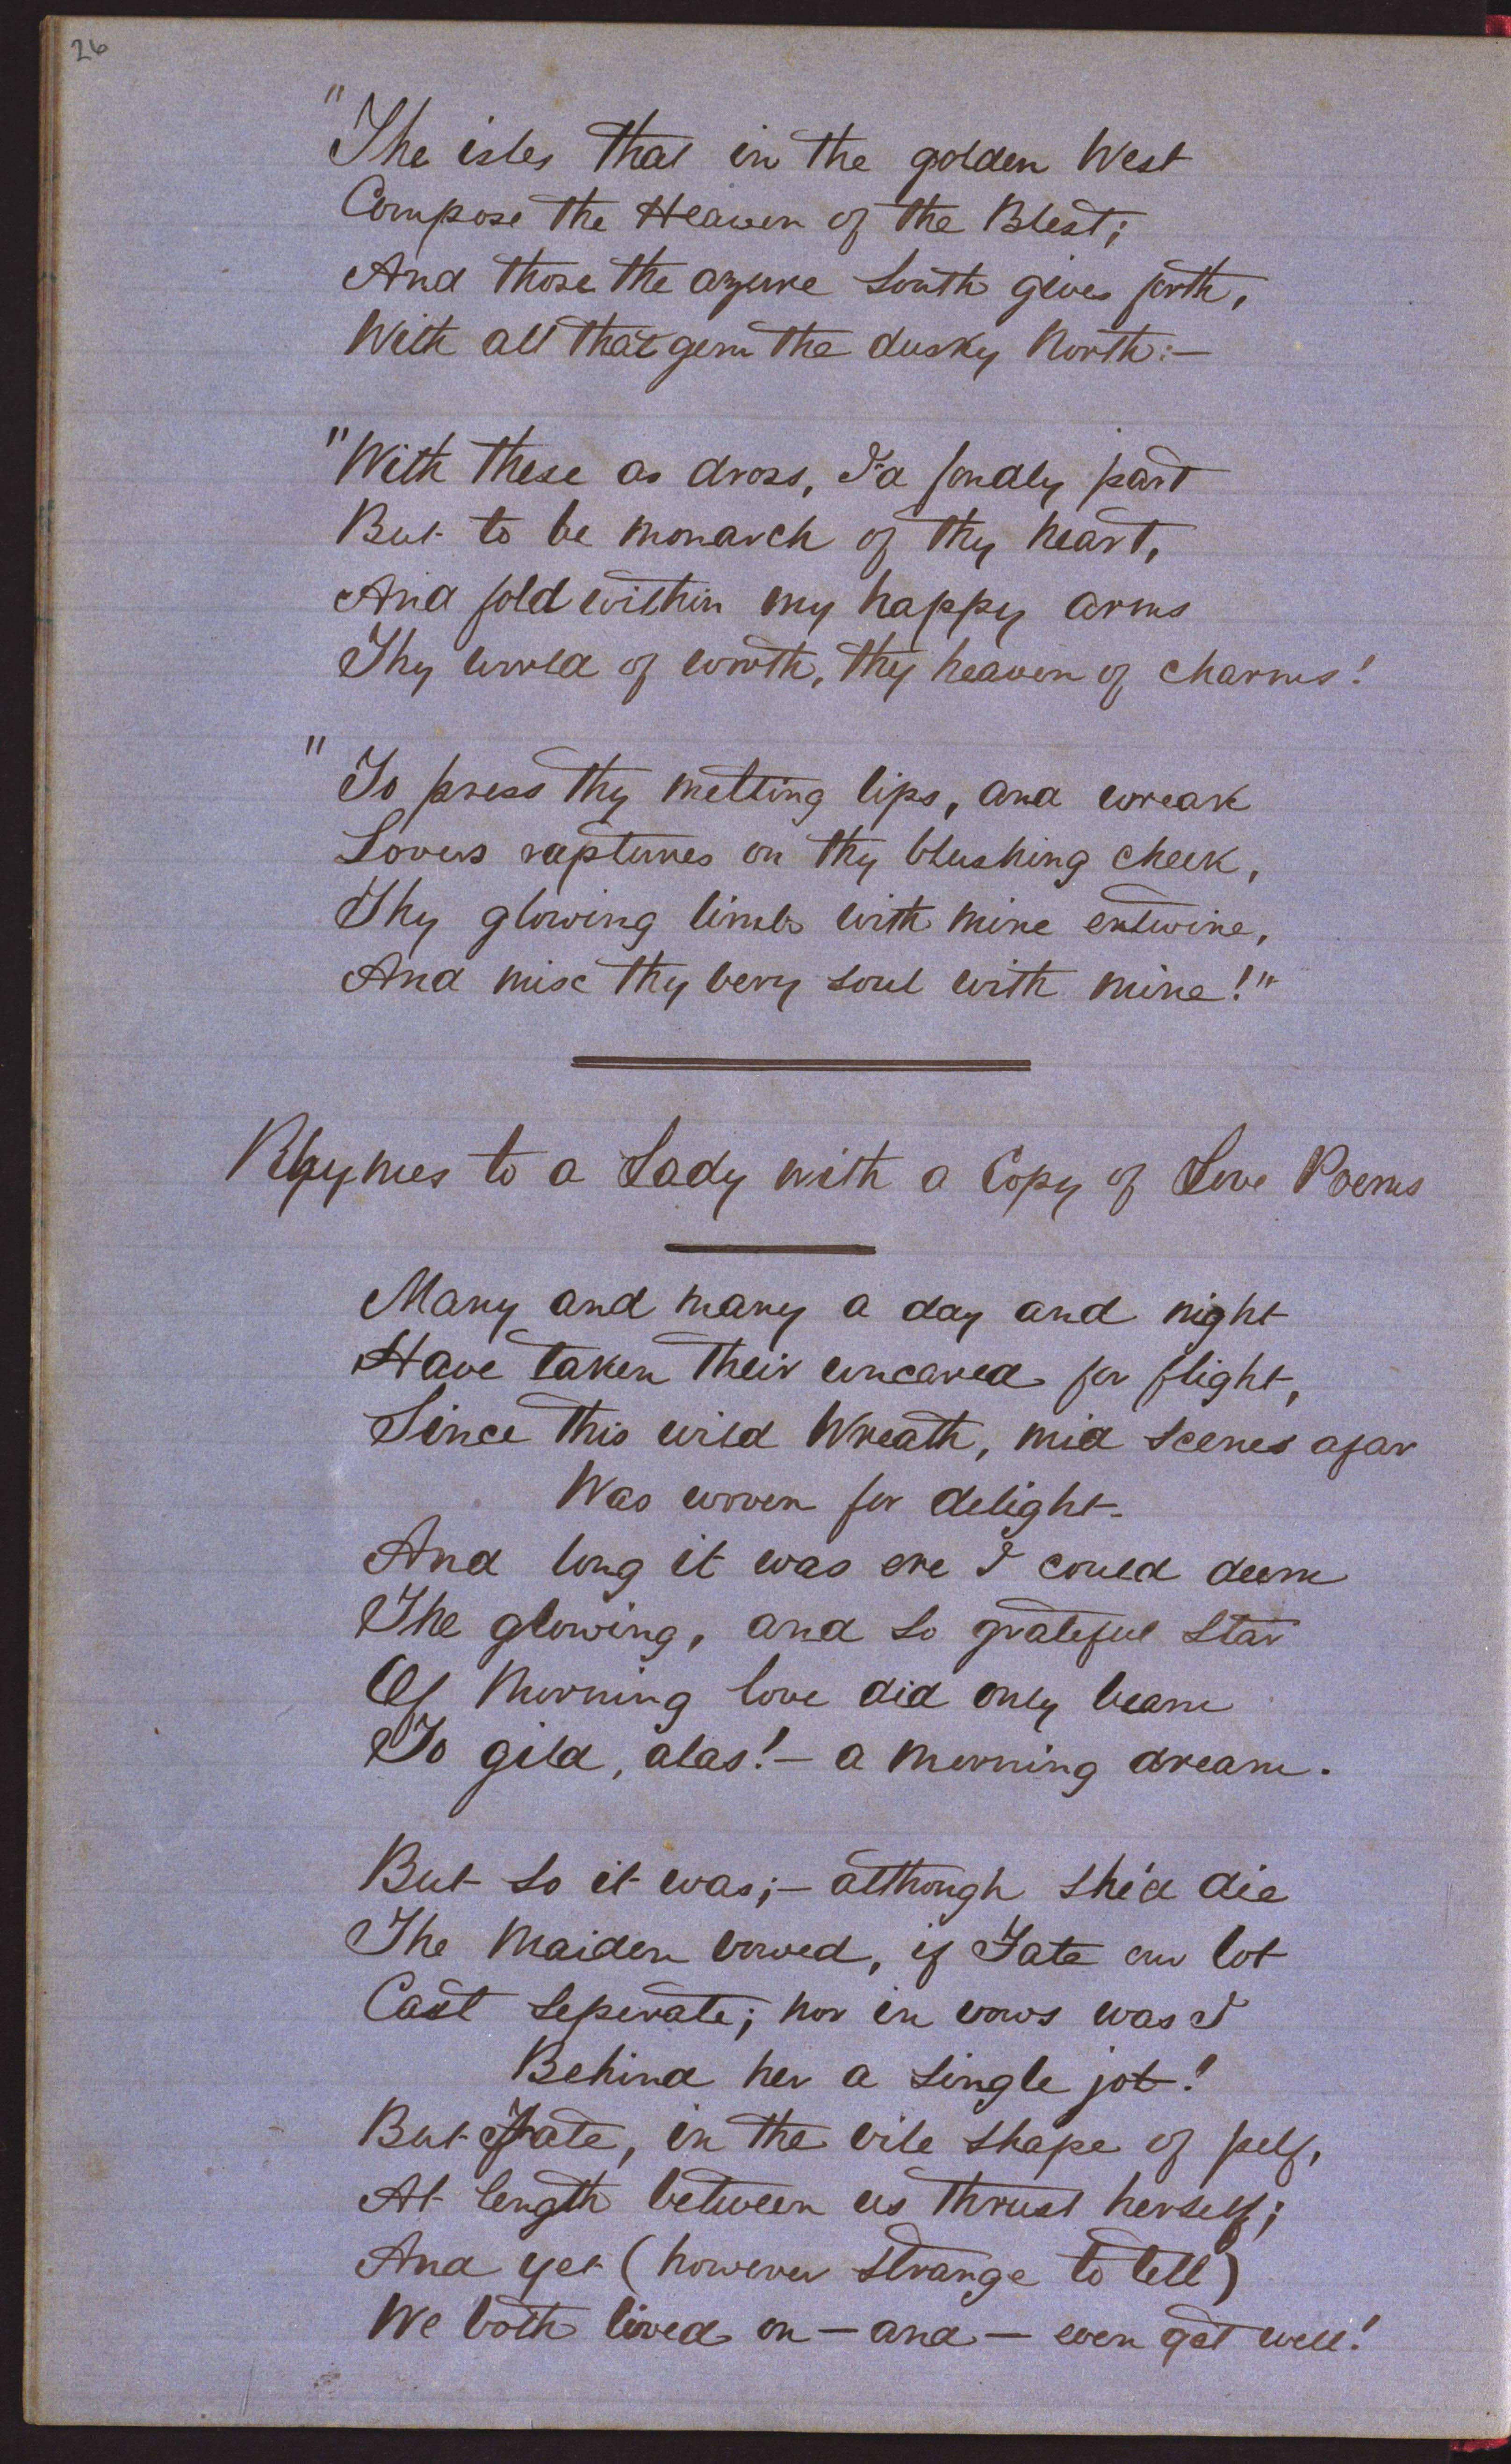 26
"The isles that in the golden West
Compose the Heaven of the Blest;
And those the azure South gives forth,
With all that gem the dusky North:—
"With these as dross, I'd fondly part
But to be monarch of thy heart,
And fold within my happy arms
Thy world of worth, thy heaven of charms!
"To press thy melting lips, and wreak
Lovers raptures on thy blushing cheek,
Thy glowing limbs with mine entwine,
And mix thy very soul with mine!"
Rhymes to a Lady with a Copy of Love Poems
Many and many a day and night
Have taken their uncared for flight,
Since this wild Wreath, mid scenes afar
Was woven for delight.
And long it was ere I could deem
The glowing, and so grateful star
Of Morning love did only beam
To gild, alas!— a morning dream.
But so it was;— although she'd die
The Maiden vowed, if Fate our lot
Cast seperate; nor in vows was I
Behind her a single jot!
But Fate, in the vile shape of pelf,
At length between us thrust herself;
And yet (however strange to tell)
We both lived on — and — even got well!